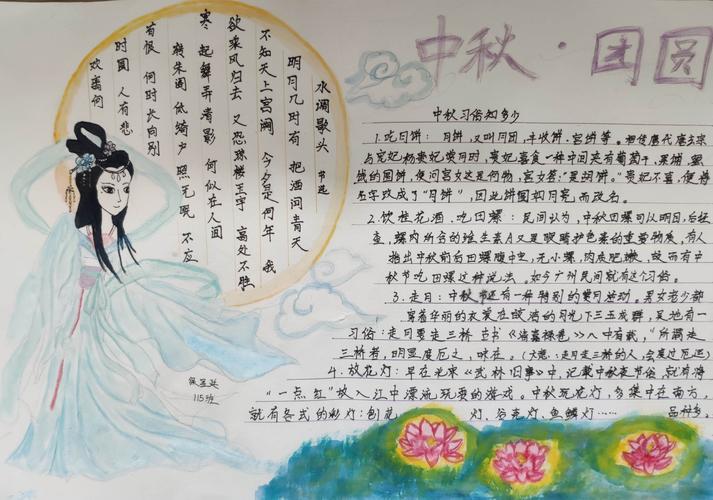 中秋·团圆
水调歌头 节选
明月几时有 把酒问青天
不知天上宫阙 今夕是何年 我
欲乘风归去 又恐琼楼玉宇 高处不胜
寒 起舞弄清影 何似在人间
转朱阁 低绮户 照无眠 不应
有恨 何时长向别
时圆 人有悲
欢离合
115班
中秋习俗知多少
1.吃月饼：月饼，又叫月团、丰收饼、宫饼等。相传唐代唐玄宗
与宠妃杨贵妃赏月时，贵妃喜食一种中间夹有葡萄干、果铺、蜜
饯的圆饼，便问宫女这是何物，宫女答："是胡饼。"贵妃不喜，便将
名字改成了"月饼"，因此饼圆如月亮而改名。
2.饮桂花酒、吃田螺：民间认为，中秋田螺可以明目，后经
查，螺肉所含的维生素A又是眼睛护色素的重要物质，有人
指出中秋前后田螺腹中空，无小螺，肉质肥嫩，故而有中
秋节吃田螺这种说法。如今广州民间就有这个习俗。
3.走月：中秋节还有一种特别的赏月活动。男女老少都
穿着华丽的衣裳在皎洁的月光下三五成群，某地有一
习俗：走月要走三桥 在书《 》八中有载，"所谓走
三桥者，明显度厄之，昧在。（大意：走月走三桥的人，会度过厄运）
4.放花灯：早在北宋《武林旧事》中，记载中秋夜节俗，就有将
"一点红"放入江中漂流玩耍的游戏。中秋玩花灯，多集中在南方，
就有各式的彩灯： 灯、谷壳灯、鱼鳞灯…… 品种多。